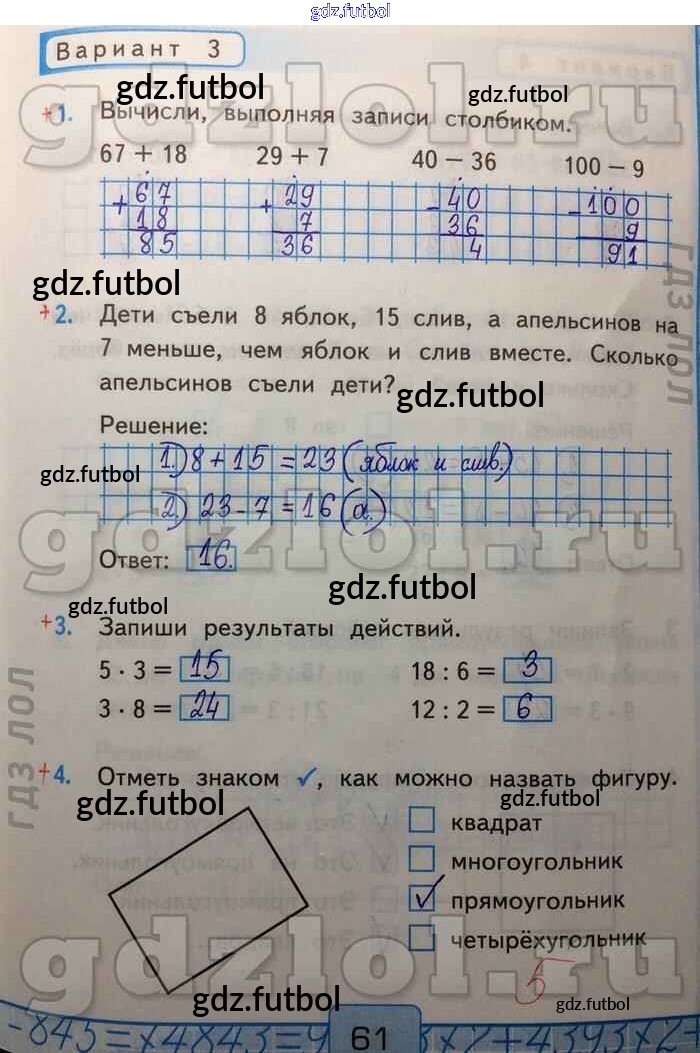 gdz.futbol
Вариант 3
gdz.futbol
gdz.futbol
+1. Вычисли, выполняя записи столбиком.
67 + 18 29 + 7 40 − 36 100 − 9
+ 67 + 29 − 40 − 100
18 7 36 9
85 36 4 91
gdz.futbol
+2. Дети съели 8 яблок, 15 слив, а апельсинов на
7 меньше, чем яблок и слив вместе. Сколько
апельсинов съели дети?
gdz.futbol
Решение:
1.) 8 + 15 = 23 (яблок и слив.)
gdz.futbol
2.) 23 - 7 = 16 (а.)
gdzlol.ru
Ответ: 16.
gdz.futbol
gdz.futbol
+3. Запиши результаты действий.
5 · 3 = 15 18 : 6 = 3
3 · 8 = 24 12 : 2 = 6
+4. Отметь знаком ✓, как можно назвать фигуру.
gdz.futbol
gdz.futbol
квадрат
многоугольник
✓ прямоугольник
четырёхугольник
gdzlol.ru
5
gdz.futbol
gdz.futbol
61
gdzlol.ru
ГДЗ ЛОЛ
ГДЗ ЛОЛ